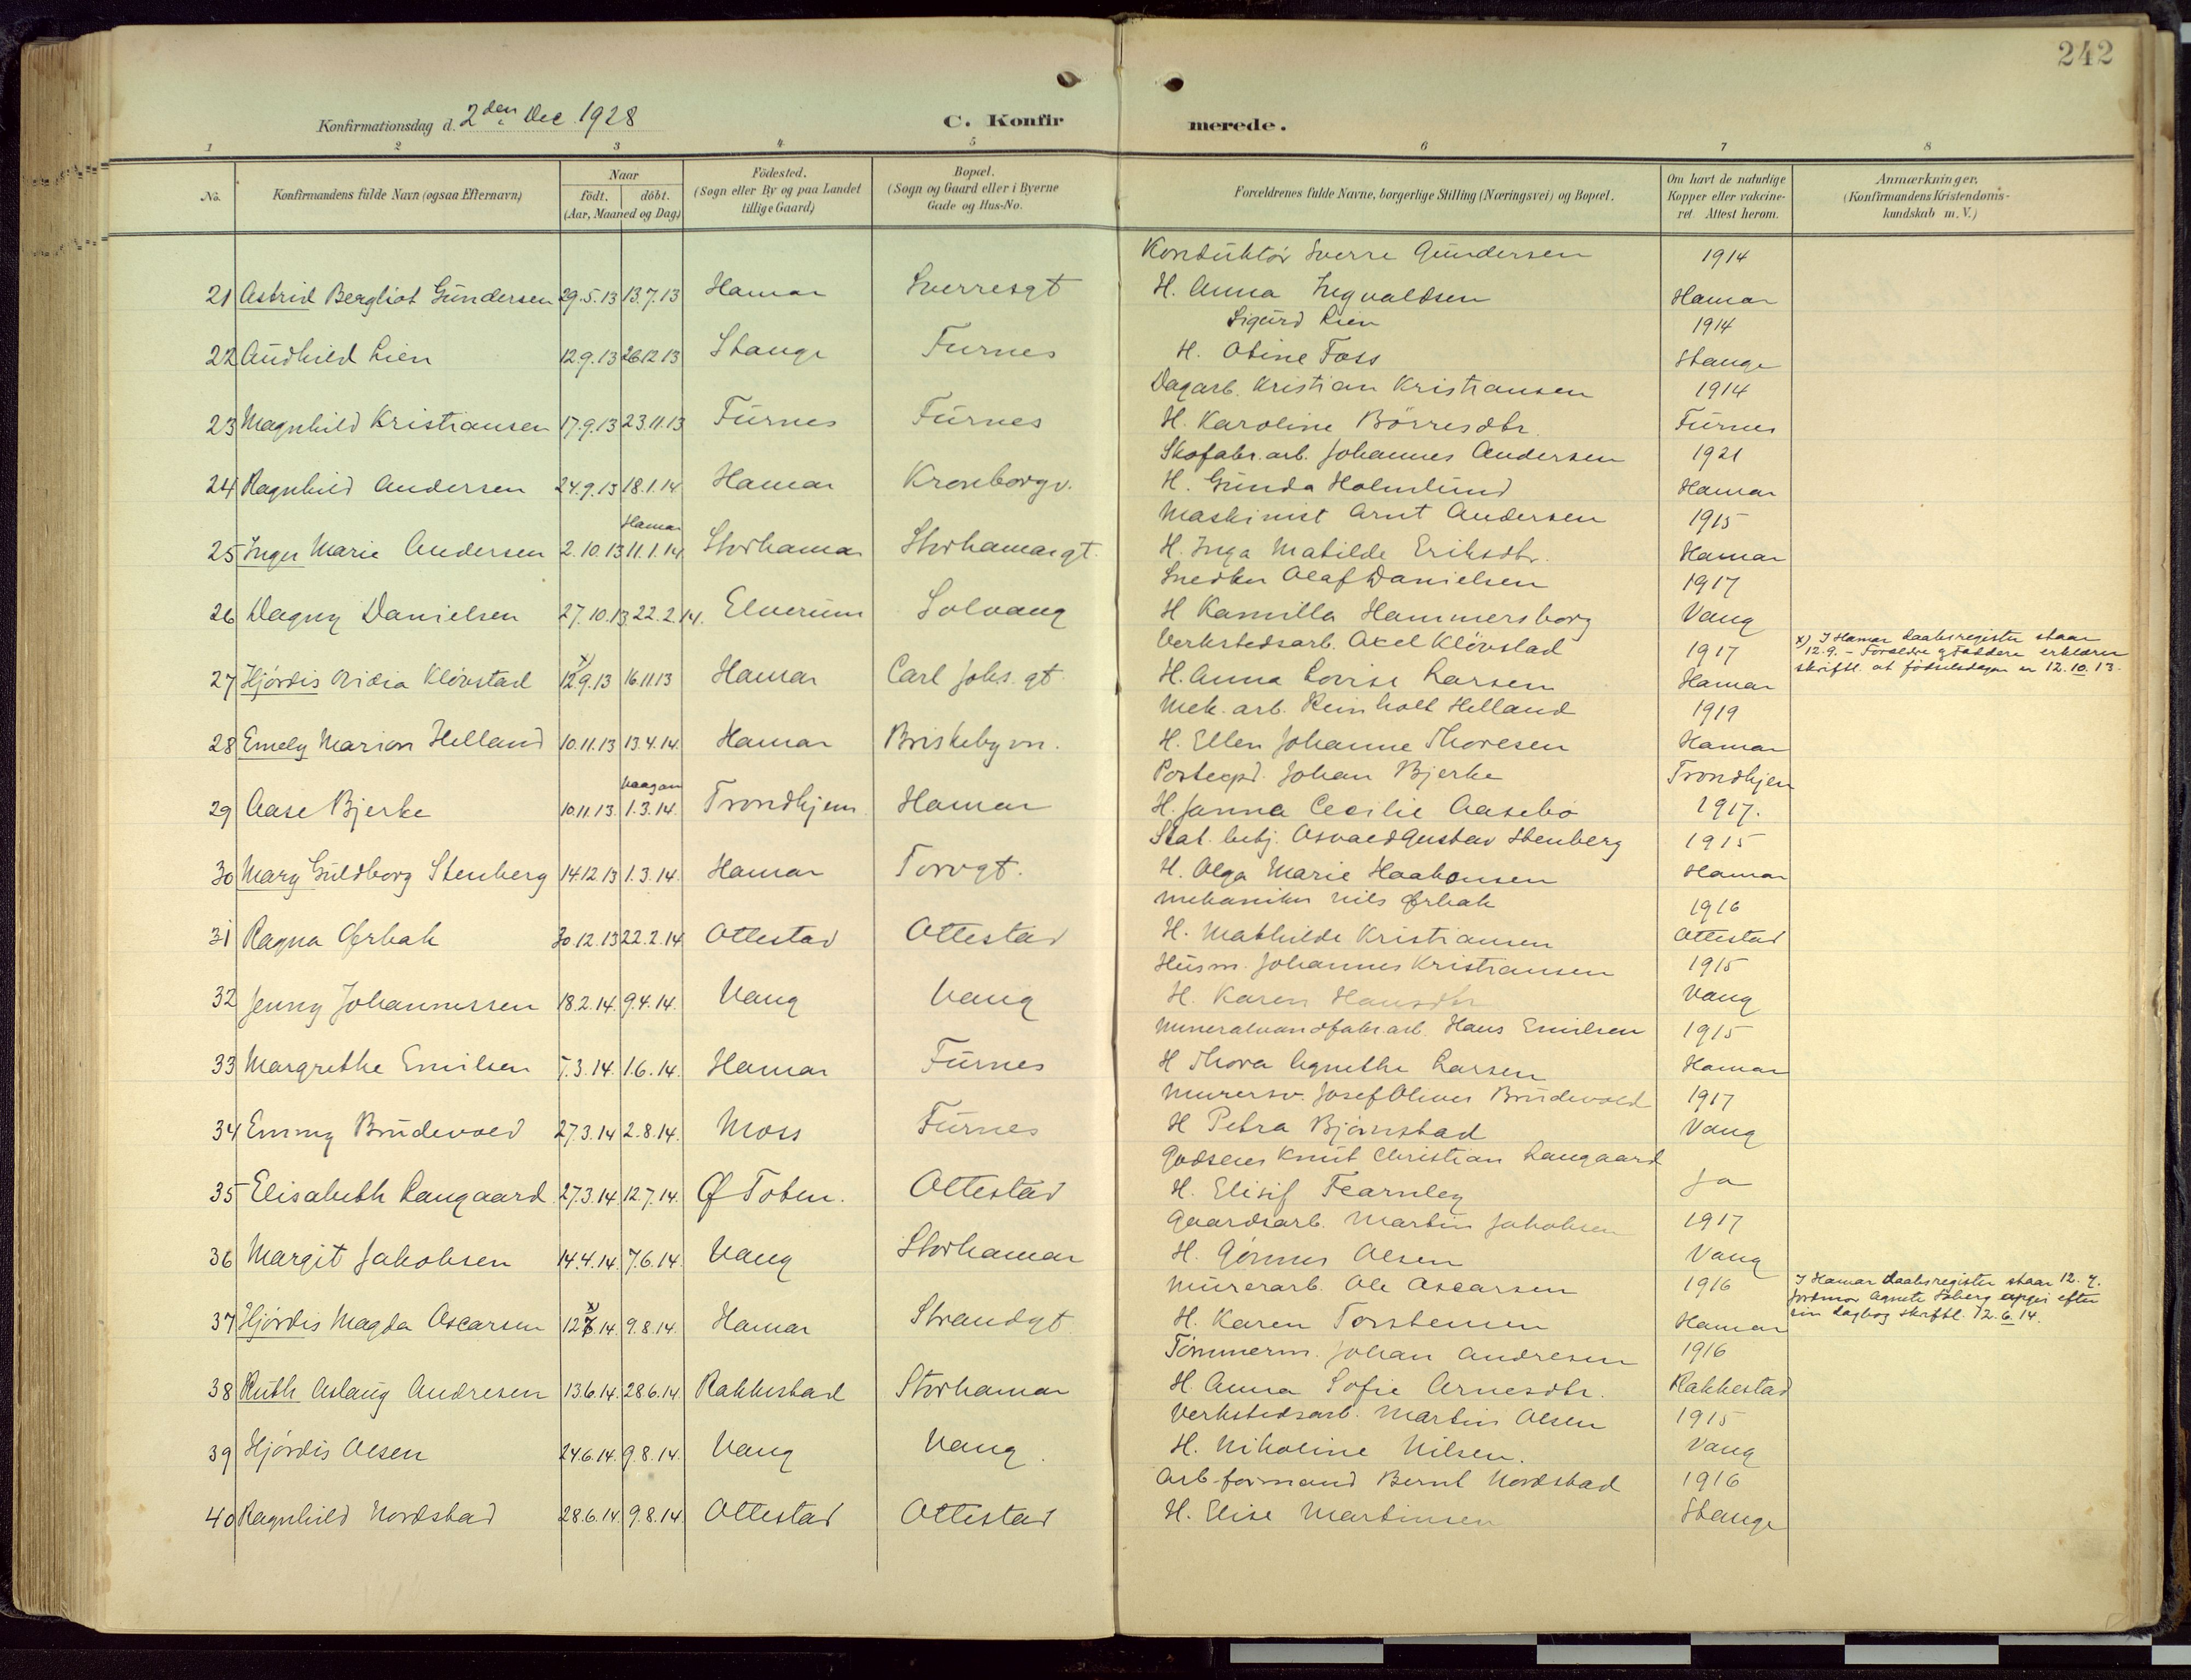 242
Konfirmationsdag d. 2den Dec. 1928
C. Konfirmerede.
1 2 3 4 5 6 7 8
No. Konfirmandens fulde Navn (ogsaa Efternavn) Naar født. døbt. (Aar, Maaned og Dag) Fødested. (Sogn eller By og paa Landet tillige Gaard) Bopæl. (Sogn og Gaard eller i Byerne Gade og Hus-No. Forældrenes fulde Navne, borgerlige Stilling (Næringsvei) og Bopæl. Om havt de naturlige Kopper eller vakcineret. Attest herom. Anmærkninger. (Konfirmandens Kristendomskundskab m. V.)
Konduktør Sverre Gundersen 1914
21 Astrid Bergliot Gundersen 29.5.13 13.7.13 Hamar Sverresgt H. Anna Ingvaldsen Hamar
Sigurd Lien 1914
22 Audhild Lien 12.9.13 26.12.13 Stange Furnes H. Otine Foss Stange
Dagarb. Kristian Kristiansen 1914
23 Magnhild Kristiansen 17.9.13 23.11.13 Furnes Furnes H. Karoline Børresdtr. Furnes
Skofabr. arb. Johannes Andersen 1921
24 Ragnhild Andersen 24.9.13 18.1.14 Hamar Kronborgv. H. Gunda Holmlund Hamar
Hamar Maskinist Arnt Andersen 1915
25 Inger Marie Andersen 2.10.13 11.1.14 Storhamar Storhamargt. H. Inga Matilde Eriksdtr. Hamar
Snedker Olaf Danielsen 1917
26 Dagny Danielsen 27.10.13 22.2.14. Elverum Solvang H Kamilla Hammersborg Vang
Verkstedsarb. Axel Kløvstad 1917
x) I Hamar daabsregister staar
12.9. – Forældre og Faddere erklærer
skriftl. at fødselsdagen er 12.10.13.
27 Hjørdis Kløvstad x) 12.9.13 16.11.13 Hamar Carl Johs. gt. H. Anna Lovise Larsen Hamar
Mek. arb. Reinholt Helland 1919
28 Emely Marion Helland 10.11.13 13.4.14. Hamar Briskebyvn. H. Ellen Johanne Thoresen Hamar
Vaagan Postexpd. Johan Bjerke Trondhjem
29 Aase Bjerke 10.11.13. 1.3.14. Trondhjem Hamar H. Janna Cecilie Aasebø 1917.
Stat. betj. Osvald Gustav Stenberg 1915
30 Mary Guldborg Stenberg 14.12.13 1.3.14. Hamar Torvgt. H. Olga Marie Haakonsen Hamar
Mekaniker Nils Ørbak 1916
31 Ragna Ørbak 30.12.13 22.2.14 Ottestad Ottestad H. Mathilde Kristiansen Ottestad
Husm. Johannes Kristiansen 1915
32 Jenny Johannessen 18.2.14. 9.4.14. Vang Vang H. Karen Hansdtr Vang
Mineralvandfabr. arb. Hans Emilsen 1915
33 Margrethe Emilsen 7.3.14. 1.6.14. Hamar Furnes H Thora Agnethe Larsen Hamar
Murersv. Josef Oliver Brudevold 1917
34 Emmy Brudevold 27.3.14 2.8.14. Moss Furnes H Petra Bjørnstad Vang
Godseier Knut Christian Langaard
35 Elisabeth Langaard 27.3.14 12.7.14. Ø Toten. Ottestad H. Elisif Fearnley Ja
Gaardsarb. Martin Jakobsen 1917
36 Margit Jakobsen 14.4.14. 7.6.14. Vang Storhamar H. Olsen Vang
Murerarb. Ole Oscarsen 1916
I Hamar daabsregister staar 12.7.
Jordmor Agnete opgir efter
sin dagbog skriftl. 12.6.14.
37 Hjørdis Magda Oscarsen x) 12.6.14. 9.8.14. Hamar Strandgt H. Karen Torstensen Hamar
Tømmerm. Johan Andresen 1916
38 Ruth Aslaug Andresen 13.6.14. 28.6.14 Rakkestad Storhamar H. Anna Sofie Arnesdtr. Rakkestad
Verkstedsarb. Martin Olsen 1915
39 Hjørdis Olsen 24.6.14. 9.8.14. Vang Vang. H. Nikoline Nilsen. Vang
Arb. formand Bernt Nordstad 1916
40 Ragnhild Nordstad 28.6.14. 9.8.14 Ottestad Ottestad H. Elise Martinsen Stange